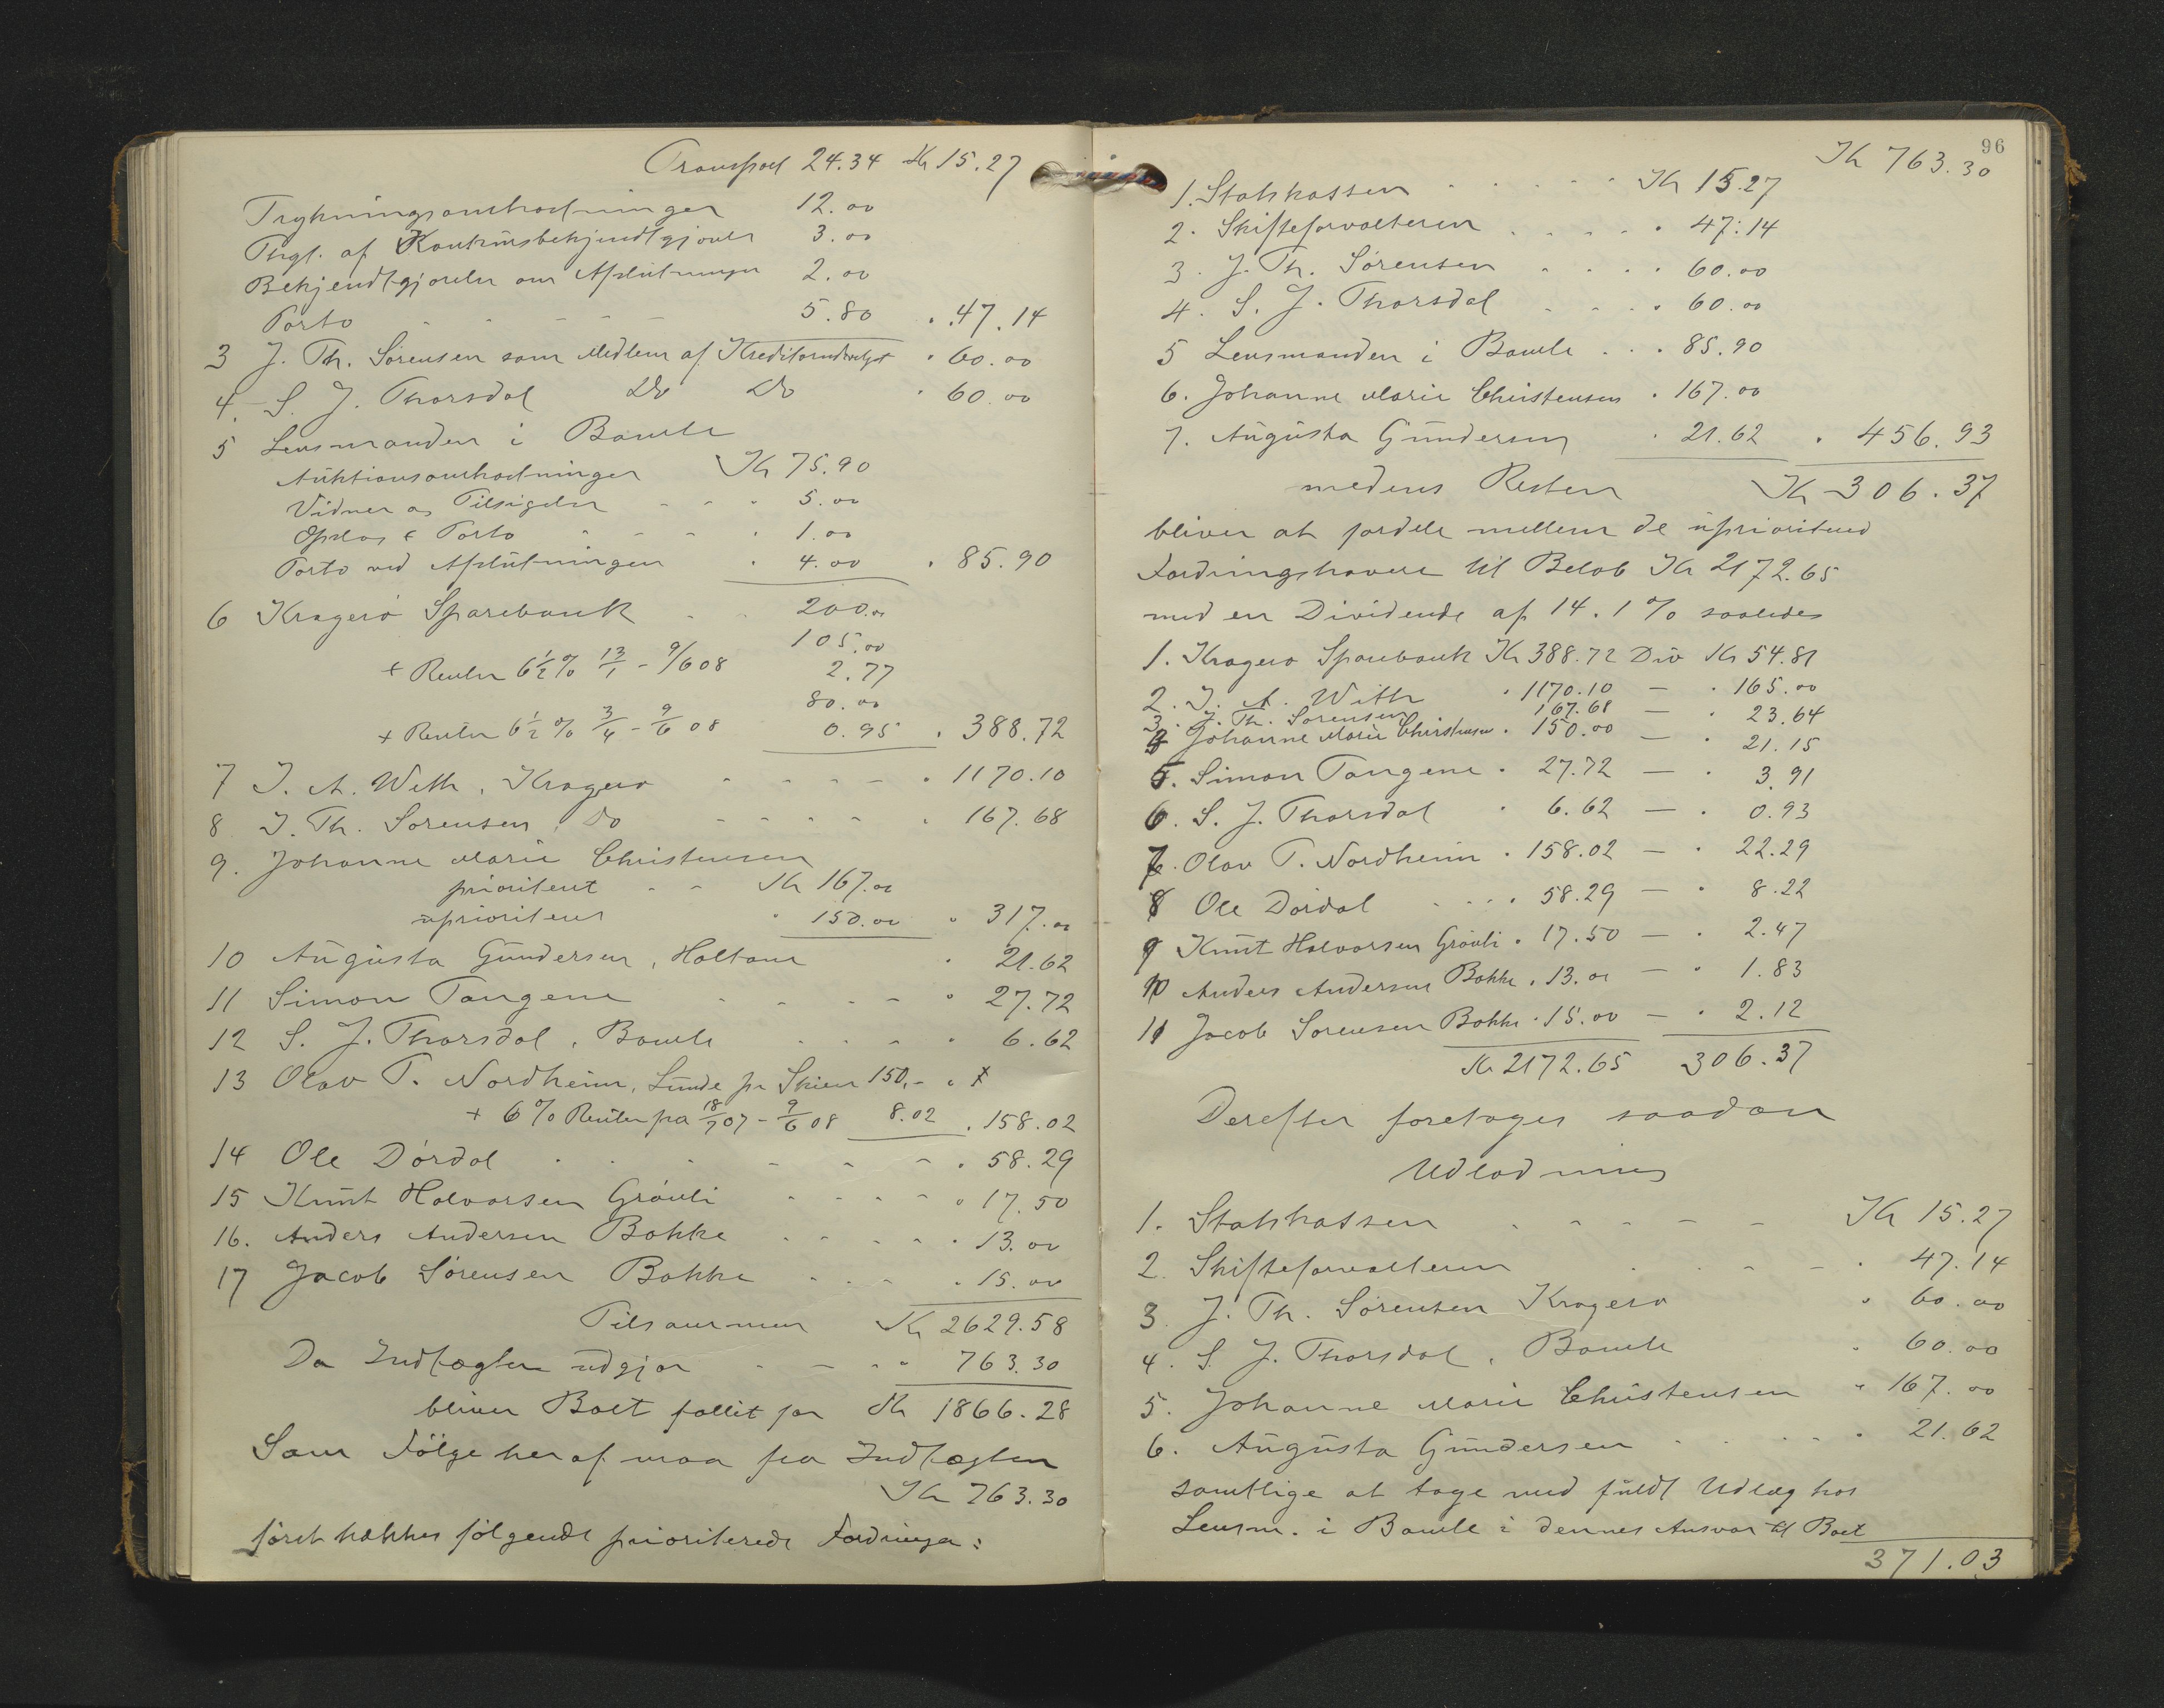 Transport 24.34 Kr 15.27
Trykningsomkostninger 12.00
Thgl. af Konkursbekjendtgjørelse 3.00
Bekjendtgjørelse om Afslutningen 2.00
Porto - - - - 5.80 " 47.14
3 J. Th. Sörensen som Medlem af Kreditorudvalget " 60.00
4. S. J. Thorsdal Do Do " 60.00
5 Lensmanden i Bamle
Auktionsomkostninger Kr 75.90
Vidner og Tilsigelse - - " 5.00
Opslag & Porto - - - " 1.00
Porto ved Afslutningen " 4.00 " 85.90
6 Kragerö Sparebank - - 200.00
105.00
+ Renter 6½% 13/1 - 9/6 08 2.77
80.00
+ Renter 6½% 3/4 - 9/6 08 0.95 " 388.72
7 J. A. With, Kragerø - - - - " 1170.10
8 J. Th. Sörensen, Do - - - - " 167.68
9. Johanne Marie Christensen
prioritert - - Kr 167.00
uprioritert " 150.00 " 317.00
10 Augusta Gundersen, Holtane " 21.62
11 Simon Tangene - - - - " 27.72
12 S. J. Thorsdal, Bamle - - - " 6.62
13 Olav T. Nordheim, Lunde pr Skien 150,- "
+ 6% Renter fra 18/7 07 - 9/6 08 8.02 " 158.02
14 Ole Dördal - - - - - " 58.29
15 Knut Halvorsen Gröuli - - - - " 17.50
16. Anders Andersen Bakke - - - - " 13.00
17 Jacob Sörensen Bakke - - - " 15.00
Tilsammen Kr 2629.58
Da Indtægten udgjør - - " 763.30
bliver Boet fallit for Kr 1866.28
Som Fölge heraf maa fra Indtægten
Kr 763.30
först trækkes fölgende prioriterede Fordringer:
96
Kr 763.30
1. Statskassen - - - - - Kr 15.27
2. Skifteforvalteren - - - - " 47.14
3. J. Th. Sörensen - - - " 60.00
4. S. J. Thorsdal - - - " 60.00
5 Lensmanden i Bamle - - " 85.90
6. Johanne Marie Christensen " 167.00
7. Augusta Gundersen " 21.62 " 456.93
medens Resten Kr 306.37
bliver at fordele mellem de uprioriterede
Fordringshavere til Beløb Kr 2172.65
med en Dividende af 14.1% saaledes
1. Kragerø Sparebank Kr 388.72 Div Kr 54.81
2. J. A. With " 1170.10 — " 165.00
3. J. Th. Sörensen 167.68 — " 23.64
4 Johanne Marie Christensen " 150.00 — " 21.15
5. Simon Tangene " 27.72 — " 3.91
6. S. J. Thorsdal " 6.62 — " 0.93
7. Olav T. Nordheim " 158.02 — " 22.29
8 Ole Dördal - - - " 58.29 — " 8.22
9 Knut Halvorsen Gröuli " 17.50 — " 2.47
10 Anders Andersen Bakke " 13.00 — " 1.83
11 Jacob Sörensen Bakke " 15.00 — " 2.12
Kr 2172.65 306.37
Derefter foretages saadan
Udlodning
1. Statskassen - - - - - Kr 15.27
2. Skifteforvalteren - - - - " 47.14
3. J. Th. Sörensen Kragerø " 60.00
4. S. J. Thorsdal, Bamle " 60.00
5. Johanne Marie Christensen " 167.00
6. Augusta Gundersen - - - - " 21.62
samtlige at tage med fuldt Udlæg hos
Lensm. i Bamle i dennes Ansvar til Boet
371.03